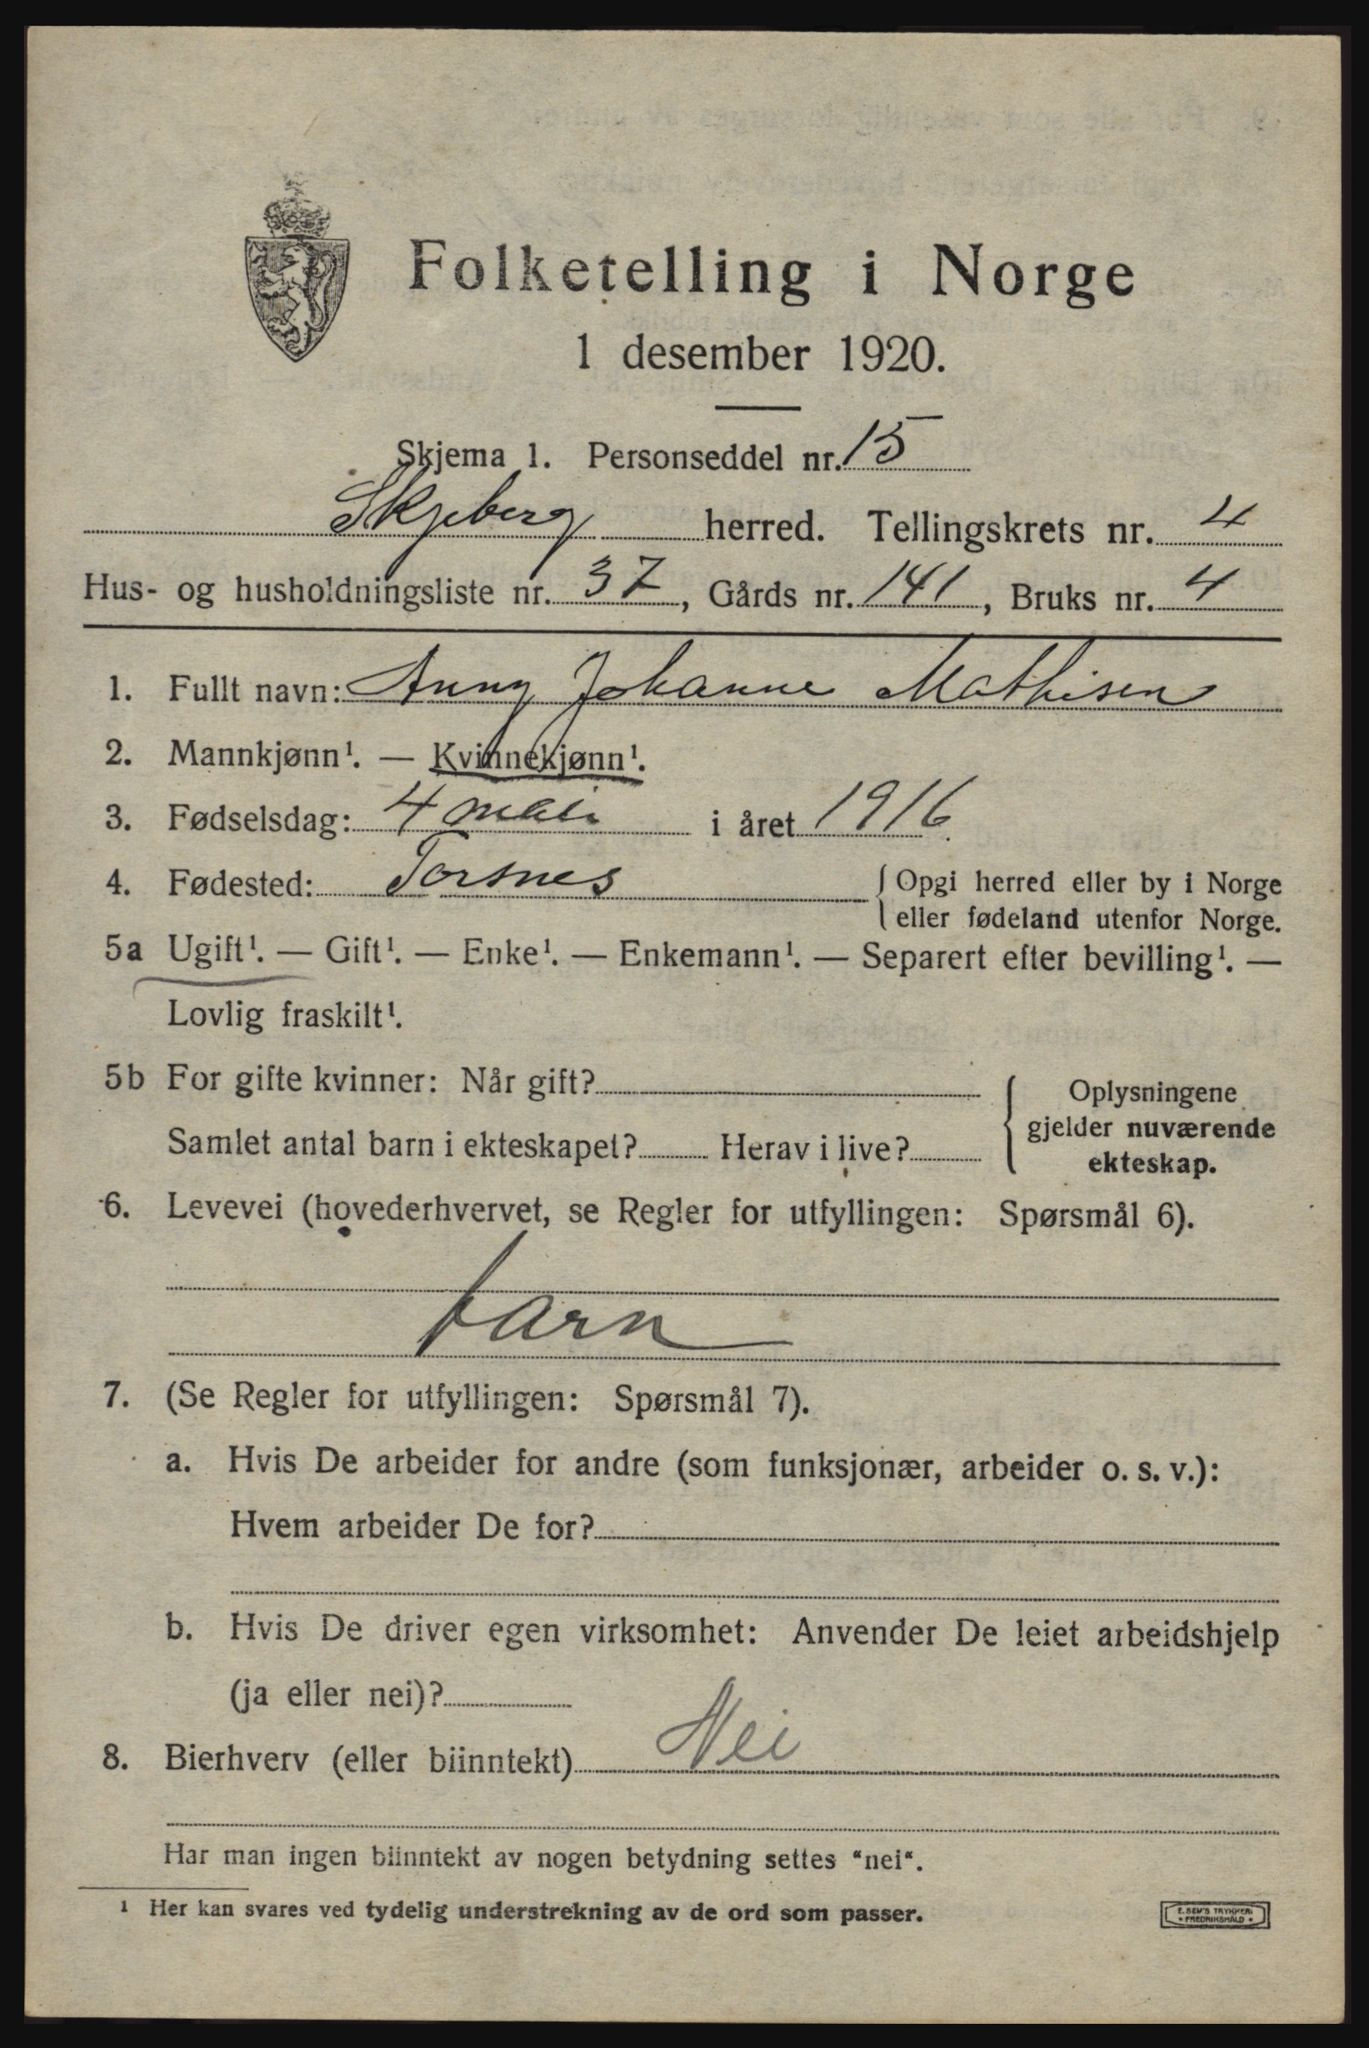 Folketelling i Norge
1 desember 1920.
Skjema 1. Personseddel nr. 15
Skjeberg herred. Tellingskrets nr. 4
Hus- og husholdningsliste nr. 37, Gårds nr. 141, Bruks nr. 4
1. Fullt navn: Anny Johanne Mathisen
2. Mannkjønn¹. — Kvinnekjønn¹.
3. Fødselsdag: 4 mai i året 1916
4. Fødested: Torsnes { Opgi herred eller by i Norge
eller fødeland utenfor Norge.
5a Ugift¹. — Gift¹. — Enke¹. — Enkemann¹. — Separert efter bevilling¹. —
Lovlig fraskilt¹.
5b For gifte kvinner: Når gift? { Oplysningene
gjelder nuværende
Samlet antal barn i ekteskapet? Herav i live?
ekteskap.
6. Levevei (hovederhvervet, se Regler for utfyllingen: Spørsmål 6).
barn
7. (Se Regler for utfyllingen: Spørsmål 7).
a. Hvis De arbeider for andre (som funksjonær, arbeider o. s. v.):
Hvem arbeider De for?
b. Hvis De driver egen virksomhet: Anvender De leiet arbeidshjelp
(ja eller nei)?
8. Bierhverv (eller biinntekt) Nei
Har man ingen biinntekt av nogen betydning settes "nei".
¹ Her kan svares ved tydelig understrekning av de ord som passer.
E. SEM'S TRYKKERI
• FREDRIKSHALD •